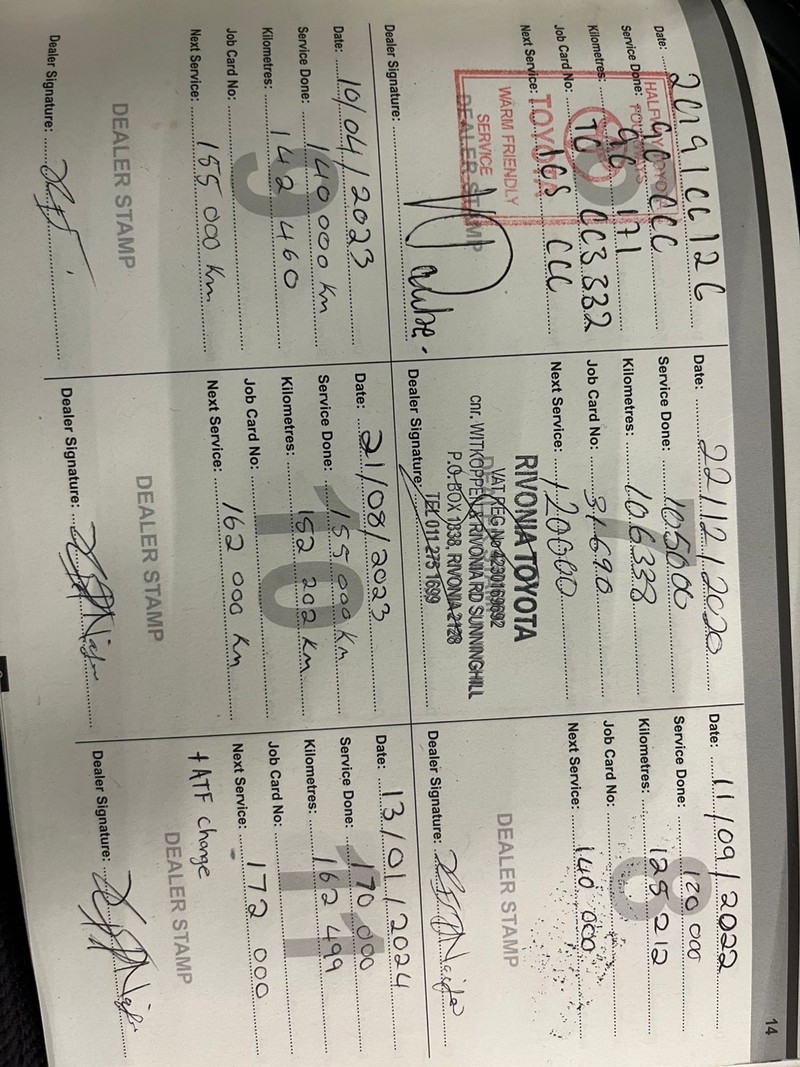 14
Date: 2019/CC/2C
Service Done: 9C CCC
Kilometres: 9C 171
Job Card No: 7C CC3332
Next Service: 1CS CCC
TOYOTA
WARM FRIENDLY
SERVICE
DEALER STAMP
Dealer Signature:
Date: 22/12/2020
Service Done: 105000
Kilometres: 106338
Job Card No: 31690
Next Service: 120000
7
RIVONIA TOYOTA
VAT REG No 4230169692
cnr. WITKOPPEN & RIVONIA RD SUNNINGHILL
P.O. BOX 1338, RIVONIA 2128
TEL 011 275 1699
Dealer Signature:
Date: 11/09/2022
Service Done: 120 000
Kilometres: 128 212
Job Card No:
Next Service: 140 000
8
DEALER STAMP
Dealer Signature:
Date: 10/04/2023
Service Done: 140 000 Km
Kilometres: 142 460
Job Card No:
Next Service: 155 000 Km
9
DEALER STAMP
Dealer Signature:
Date: 21/08/2023
Service Done: 155 000 Km
Kilometres: 152 202 Km
Job Card No:
Next Service: 162 000 Km
10
DEALER STAMP
Dealer Signature:
Date: 13/01/2024
Service Done: 170 000
Kilometres: 162 499
Job Card No:
Next Service: 172 000
11
+ ATF change
DEALER STAMP
Dealer Signature: